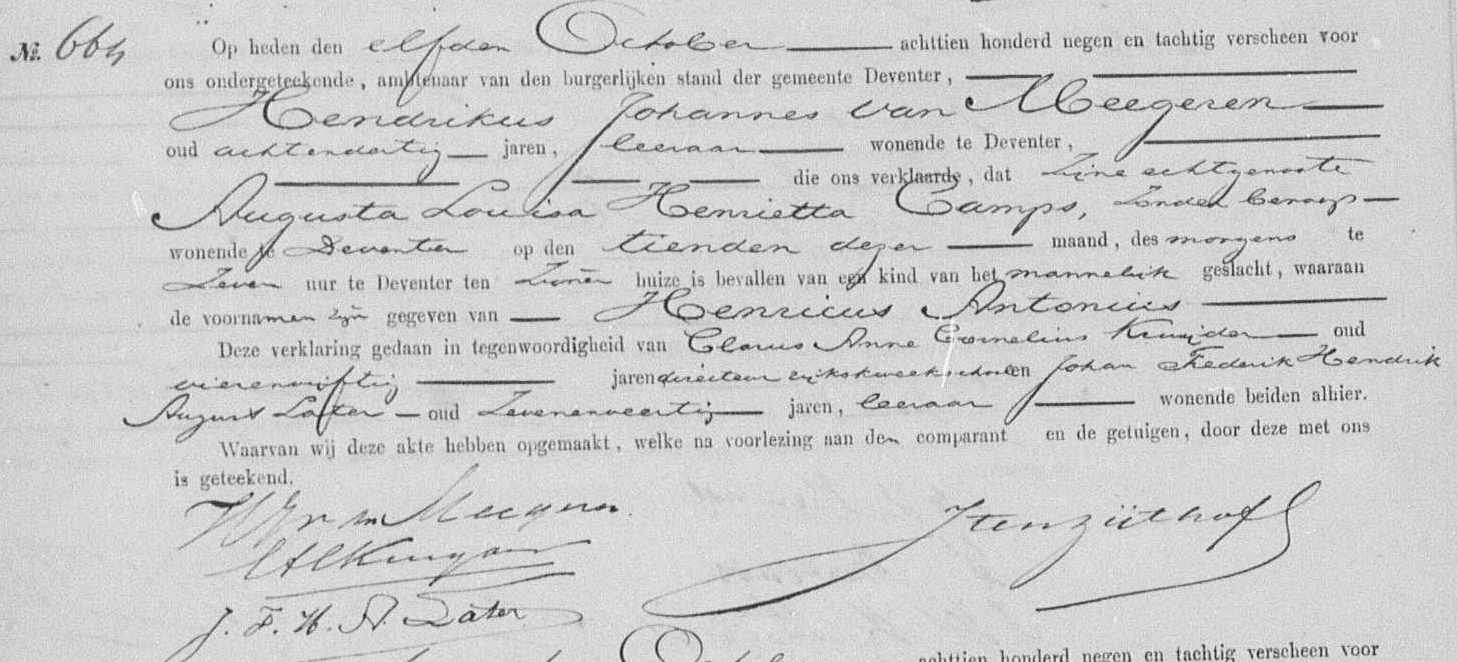 No. 664 Op heden den elfden October achttien honderd negen en tachtig verscheen voor
ons ondergeteekende, ambtenaar van den burgerlijken stand der gemeente Deventer,
Hendrikus Johannes van Meegeren
oud achtendertig jaren, leeraar wonende te Deventer,
die ons verklaarde, dat zijne echtgenoote
Augusta Louisa Henrietta Camps, zonder beroep
wonende te Deventer op den tienden dezer maand, des morgens te
zeven uur te Deventer ten zijnen huize is bevallen van een kind van het mannelijk geslacht, waaraan
de voornamen zijn gegeven van Henricus Antonius
Deze verklaring gedaan in tegenwoordigheid van Clarus Anne Cornelius oud
vierenvijftig jaren directeur rijkskweekschool en Johan Frederik Hendrik
August Läter oud zevenenveertig jaren, leeraar wonende beiden alhier.
Waarvan wij deze akte hebben opgemaakt, welke na voorlezing aan den comparant en de getuigen, door deze met ons
is geteekend.
van Meegeren
J. F. H. A. Läter
October achttien honderd negen en tachtig verscheen voor